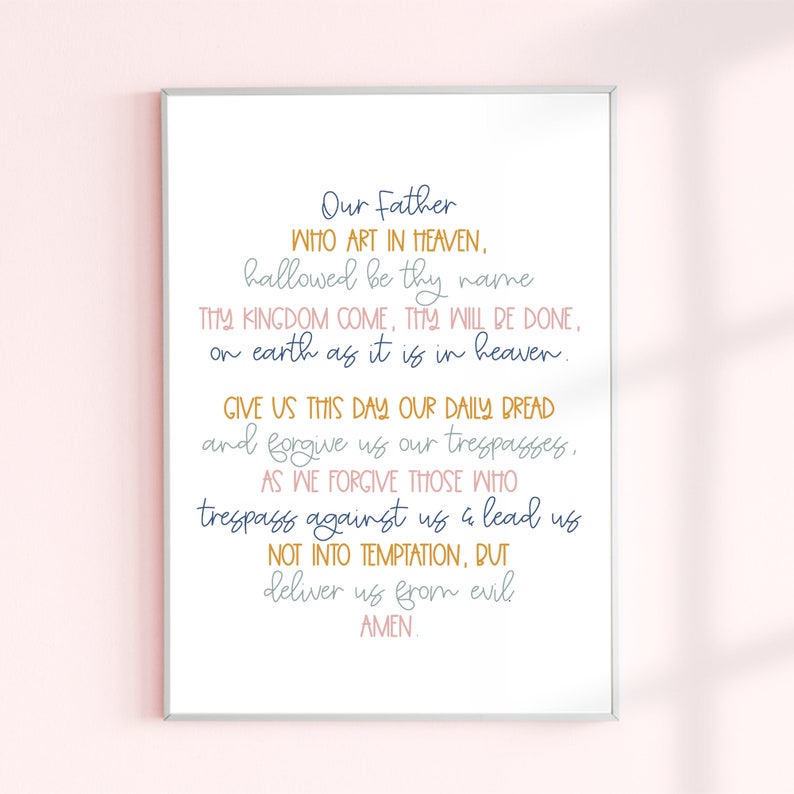 Our Father
WHO ART IN HEAVEN,
hallowed be thy name
THY KINGDOM COME, THY WILL BE DONE,
on earth as it is in heaven.
GIVE US THIS DAY OUR DAILY BREAD
and forgive us our trespasses,
AS WE FORGIVE THOSE WHO
trespass against us & lead us
NOT INTO TEMPTATION, BUT
deliver us from evil.
AMEN.